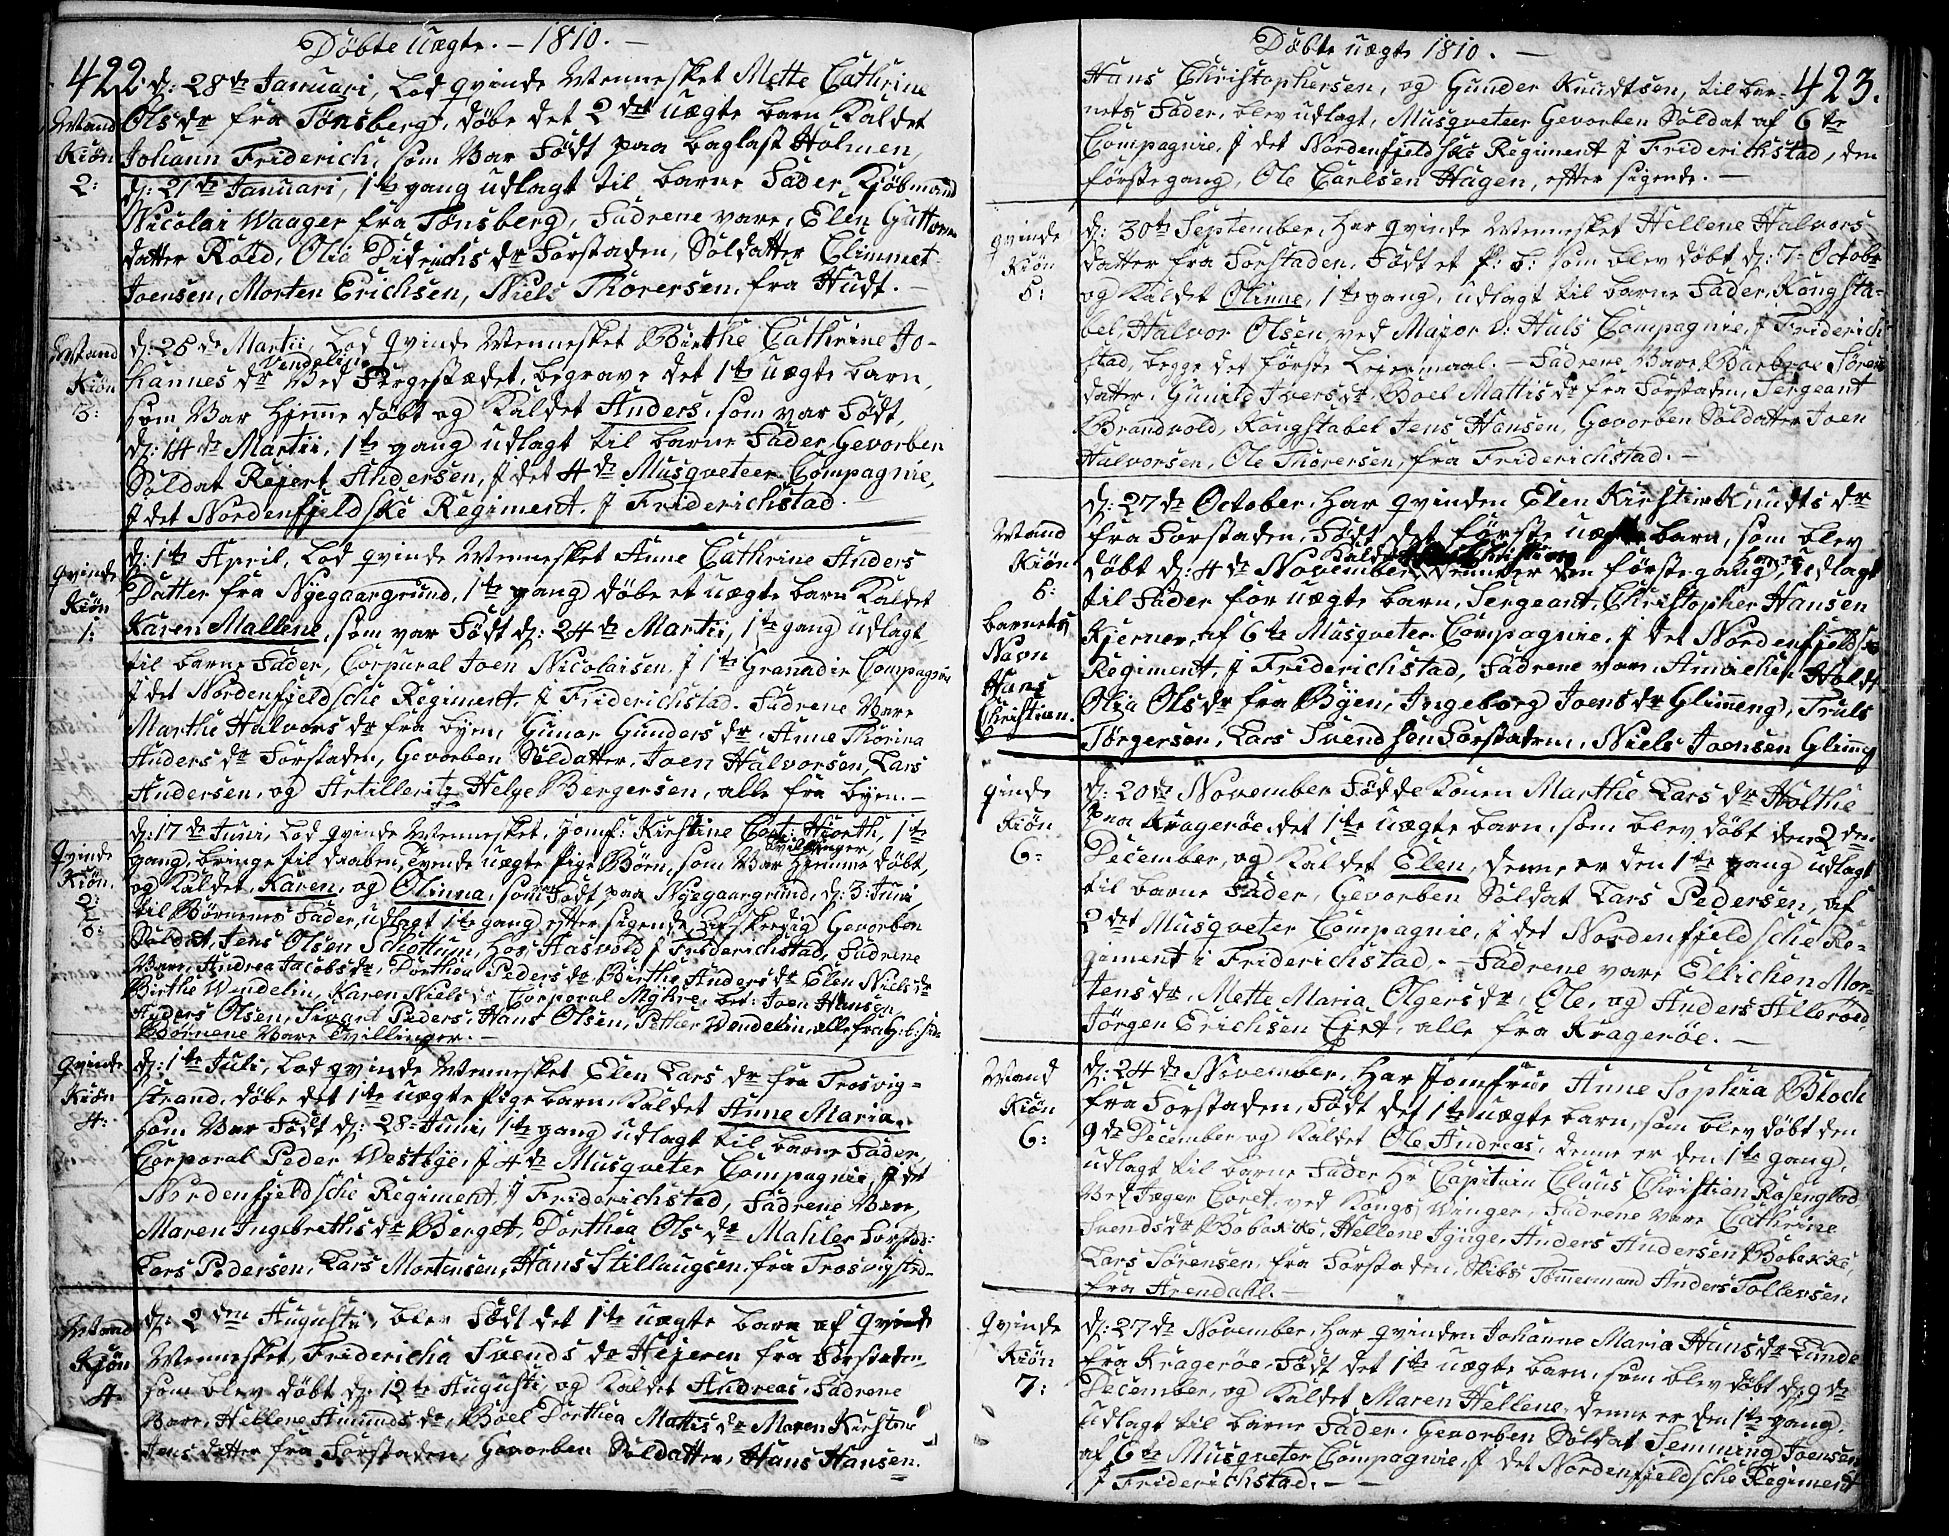 Döbte uægte. – 1810. –
422. d: 28de Januari, Lod qvinde Mennesket Mette Cathrine
Mand Olsdr fra Tønsberg, døbe det 2det uægte barn Kaldet
Kiøn Johann Friderich, som Var Født paa Baglast Holmen,
2: d: 21de Januari, 1te gang udlagt til barne Fader Kjøbmand
Nicolai Waager fra Tønsberg, Fadrene vare, Elen Guttorm
datter Röld, Olia Didrichs dr Forstaden, Soldatter Climmet
Joensen, Morten Erichsen, Niels Thorersen, fra Hudt. –
Mand d: 26de Martii, Lod qvinde Mennesket Birthe Cathrine Jo-
Vendelin
Kiön hannes dr Ved Færgestædet, begrave det 1te uægte barn,
3: som Var hjemme døbt og Kaldet Anders, som var Født,
d: 14de Martii, 1te gang udlagt til barne Fader Gevorben
Soldat Rejert Andersen, J det 4de Musqveteer Compagnie,
J det Nordenfjeldske Regiment J Friderichstad.
qvinde d: 1te April, Lod qvinde Mennesket Anne Cathrine Anders
Kiøn Datter fra Nyegaargrund, 1te gang døbe et uægte barn Kaldet
1: Karen Mallene, som var Født d: 24de Martii, 1te gang udlagt
til barne Fader, Corpural Joen Nicolaisen J 1te Granadir Compagnie
J det Nordenfjeldsche Regiment, J Friderichstad. Fadrene Vare
Marthe Halvors dr fra byen, Gunor Gunders dr. Anne Thorina
Anders dr Forstaden, Gevorben Soldatter, Joen Halvorsen, Lars
Andersen, og Artillerite Helge Bergersen, alle fra byen. –
d: 17de Juni, Lod qvinde Mennesket, jomf: Kirstine Hiorth, 1te
Tvillinger
Qvinde gang, bringe til daaben, Tvende uægte Pige Børn, som Var hjemme døbt,
Kiøn. og Kaldet, Karen, og Olinna, som Født paa Nyegaargrund, d: 3. Juni,
2: til Børnenes Fader, udlagt 1te gang efter sigende Gevorben
3: Soldat, Jens Olsen J Friderichstad, Fadrene
Vare, Andrea Jacobs dr, Dorthea Peders dr Birthe Anders dr Elen Niels dr
Birthe Wendelin, Karen Niels dr Corporal Myhre, Joen Hansen,
Anders Olsen, Sivart Peders: Hans Olsen, Petter Wendelin, alle fra
Børnene Vare Tvillinger. –
Qvinde d: 1te Juli, Lod qvinde Mennesket Elen Lars dr fra Trosvig-
Kiøn strand, døbe det 1te uægte Pige barn, Kaldet Anne Maria,
4: som Var Født d: 28 Juni, 1te gang udlagt til barne Fader,
Corporal Peder Westbye, J 4de Musqveter Compagnie, J det
Nordenfjeldsche Regiment, J Friderichstad, Fadrene Vare,
Maren Ingebreths dr Berget, Dorthea Ols dr Mahler Forstad:
Lars Pedersen, Lars Mortensen, Hans Stillaugsen, fra Trosvigstrd–
Mand d: 2den Augusti, blev Født det 1te uægte barn af qvinde
Kjøn Mennesket, Fridericha Svends dr Hejeren fra Forstaden,
4 som blev døbt d: 12te Augusti, og Kaldet Andreas, Fadrene
Vare, Hellene Amunds dr, Boel Dorthea Mattis dr Maren Kirstene
Jens datter fra Forstaden, Gevorben Soldatter, Hans Hansen.
Döbte uægte 1810. –
423.
Hans Christophersen, og Gunder Knudtsen, til bar-
nets Fader, blev udlagt, Musqveteer Gevorben Soldat af 6te
Compagnie, J det Nordenfjeldske Regiment J Friderichstad, den
første gang, Ole Carlsen Hagen, efter sigende. –
qvinde d: 30te September, har qvinde Mennesket Hellene Halvors
Kiøn datter fra Forstaden, Født et P: b: som blev døbt d: 7. Octobr
5: og Kaldet Olinne, 1te gang, udlagt til barne Fader, Kongsta-
bel, Halvor Olsen, ved Major v: Huls Compagnie, J Friderich-
stad, begge det første Leiermaal. – Fadrene Vare, Barbroe Søren
datter, Gunild Ivers dr. Boel Mattis dr fra Forstaden, Sergeant
Brandvold, Kongstabel Jens Hansen, Gevorben Soldatter Joen
Halvorsen, Ole Thorersen, fra Friderichstad. –
Mand d: 27de October, har qvinden Elen Kirstine Knudts dr
Kiøn fra Forstaden, Født det første uægte barn, som blev
5: døbt d: 4de November, Kaldet Christian denne er den første gang, udlagt
til Fader for uægte barn, Sergeant, Christopher Hansen
barnets Kjerner, af 6te Musqveter Compagnie, J det Nordenfjeldske
Navn Regiment, J Friderichstad, Fadrene vare, Holdt
Hans Olia Ols dr fra Byen, Ingeborg Joens dr Glimeng, Truls
Christian. Törgersen, Lars Svendsen Forstaden, Niels Joensen Glimeg
qinde d: 20de November Fødde Konen Marthe Lars dr Holthe
Kiøn paa Kragerøe, det 1te uægte barn, som blev døbt den 2den
6: December, og Kaldet Elen, denne er den 1te gang udlagt
til barne Fader, Gevorben Soldat Lars Pedersen, af
2det Musqveter Compagnie, J det Nordenfjeldsche Re-
gement i Friderichstad, – Fadrene vare Ellichen Mor-
tens dr, Mette Maria Olgers dr, Ole, og Anders Alleröed,
Jørgen Erichsen, alle fra Kragerøe. –
Mand d: 24de November, har Jomfrue Anne Sophia Bloch
Kiøn fra Forstaden, Født det 1te uægte barn, som blev døbt den
6: 9de December, og Kaldet Ole Andreas, denne er den 1te gang,
udlagt til barne Fader Hr Capitain Claus Christian Rosenglad
Ved Jæger Coret ved Kongs Winger, Fadrene Vare Cathrine
Svends dr Bobakke, Hellene Igiuge, Anders Andersen Bobakke
Lars Sørensen, fra Forstaden, Skibs Tømmermand Anders Tollevsen
fra Arendahl. –
Qvinde d: 27de November, har qvinden Johanne Maria Hans dr Lunde
Kiøn fra Kragerøe, Født det 1te uægte barn, som blev døbt d: 9de
7: December, og Kaldet Maren Hellene, denne er den 1te gang,
udlagt til barne Fader, Gevorben Soldat Joensen
af 6te Musqveter Compagnie, J det Nordenfjeldsche Regiment
J Friderichstad. –